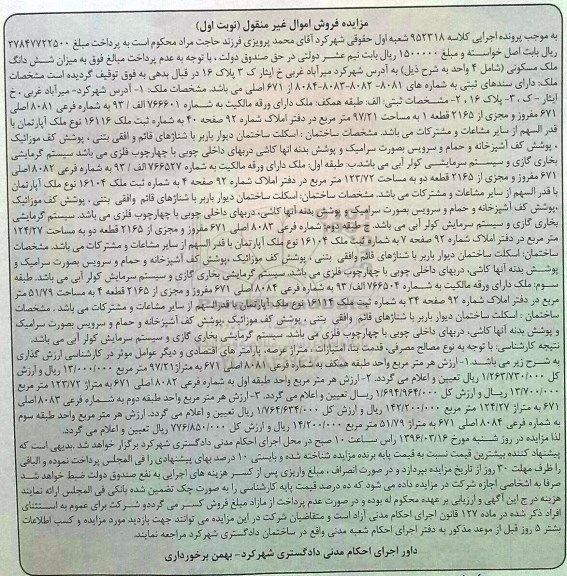 مزایده فروش اموال غیر منقول (نوبت اول)
به موجب پرونده اجرایی کلاسه ۹۵۲۳۱۸ شعبه اول حقوقی شهرکرد آقای محمد پرویزی فرزند حاجت مراد محکوم است به پرداخت مبلغ ۳۷۸۴۷۷۲۲۵۰۰
ریال بابت اصل خواسته و مبلغ ۱۵۰۰۰۰۰ ریال بابت نیم عشر دولتی در حق صندوق دولت ، با توجه به عدم پرداخت مبالغ فوق به میزان شش دانگ
ملک مسکونی (شامل ۴ واحد به شرح ذیل) به آدرس شهرکرد میرآباد غربی خ ایثار ک ۳ پلاک ۱۶ در قبال بدهی به فوق توقیف گردیده است مشخصات
ملک: دارای سندهای ثبتی به شماره های ۸۰۸۱-۸۰۸۲-۸۰۸۳-۸۰۸۴ از ۶۷۱ اصلی می باشد. مشخصات ملک: ۱- آدرس شهرکرد- میرآباد غربی . خ
ایثار – ک . ۳- پلاک ۱۶ . ۲- مشخصات ثبتی: الف: طبقه همکف: ملک دارای ورقه مالکیت به شماره ۷۶۶۶۰۱ الف / ۹۳ به شماره فرعی ۸۰۸۱ اصلی
۶۷۱ مفروز و مجزی از ۲۱۶۵ قطعه ۱ به مساحت ۹۷/۲۱ متر مربع در دفتر املاک شماره ۹۲ صفحه ۴۰ به شماره ثبت ملک ۱۶۱۱۶ نوع ملک آپارتمان با
قدر السهم از سایر مشاعات و مشترکات می باشد. مشخصات ساختمان : اسکلت ساختمان دیوار باربر با شناژهای قائم و افقی بتنی ، پوشش کف موزائیک
، پوشش کف آشپزخانه و حمام و سرویس بصورت سرامیک و پوشش بدنه آنها کاشی دربهای داخلی چوبی با چهارچوب فلزی می باشد سیستم گرمایشی
بخاری گازی و سیستم سرمایشی کولر آبی می باشد. ب: طبقه اول: ملک دارای ورقه مالکیت به شماره ۷۶۶۵۲۷ الف / ۹۳ به شماره فرعی ۸۰۸۲ اصلی
۶۷۱ مفروز و مجزی از ۲۱۶۵ قطعه دو به مساحت ۱۲۳/۷۲ متر مربع در دفتر املاک شماره ۹۲ صفحه ۴ به شماره ثبت ملک ۱۶۱۰۴ نوع ملک آپارتمان
با قدر السهم از سایر مشاعات و مشترکات می باشد. مشخصات ساختمان: اسکلت ساختمان دیوار باربر با شناژهای قائم وافقی بتنی ، پوشش کف موزائیک
،پوشش کف آشپزخانه و حمام و سرویس بصورت سرامیک و پوشش بدنه آنها کاشی، دربهای داخلی چوبی با چهارچوب فلزی می باشد. سیستم گرمایشی
بخاری گازی و سیستم سرمایش کولر آبی می باشد. ج: طبقه دوم: شماره فرعی ۸۰۸۳ اصلی ۶۷۱ مفروز و مجزی از ۲۱۶۵ قطعه دو به مساحت ۱۲۴/۲۷
متر مربع در دفتر املاک شماره ۹۲ صفحه ۷ به شماره ثبت ملک ۱۶۱۰۴ نوع ملک آپارتمان با قدر السهم از سایر مشاعات و مشترکات می باشد. مشخصات
ساختمان: اسکلت ساختمان دیوار باربر با شناژهای قائم وافقی بتنی ، پوشش کف موزائیک ،پوشش کف آشپزخانه و حمام و سرویس بصورت سرامیک و
پوشش بدنه آنها کاشی، دربهای داخلی چوبی با چهارچوب فلزی می باشد. سیستم گرمایشی بخاری گازی و سیستم سرمایش کولر آبی می باشد. طبقه
سوم: ملک دارای ورقه مالکیت به شماره ۷۶۶۵۰۴ الف/۹۳ به شماره فرعی ۸۰۸۴ اصلی ۶۷۱ مفروز و مجزی از ۲۱۶۵ قطعه ۴ به مساحت ۵۱/۷۹ متر
مربع در دفتر املاک شماره ۹۲ صفحه ۳۴ به شماره ثبت ملک ۱۶۱۱۴ نوع ملک آپارتمان با قدرالسهم از سایر مشاعات و مشترکات می باشد . مشخصات
ساختمان : اسکلت ساختمان دیوار باربر با شناژهای قائم وافقی بتنی ، پوشش کف موزائیک ،پوشش کف آشپزخانه و حمام و سرویس بصورت سرامیک
و پوشش بدنه آنها کاشی، دربهای داخلی چوبی با چهارچوب فلزی می باشد. سیستم گرمایشی بخاری گازی و سیستم سرمایش کولر آبی می باشد.
نتیجه کارشناسی: با توجه به نوع مصالح مصرفی، قدمت بنا، امتیازات ، متراژ عرصه، پارامتر های اقتصادی و دیگر عوامل موثر در کارشناسی ارزش گذاری
به شرح زیر می باشد. ۱- ارزش هر متر مربع واحد طبقه همکف به شماره فرعی ۸۰۸۱ اصلی ۶۷۱ به متراژ ۹۷/۲۱ متر مربع ۱۳/۰۰۰/۰۰۰ ریال و ارزش
کل ۱/۲۶۳/۷۳۰/۰۰۰ ریال تعیین و اعلام می گردد. ۲- ارزش هر متر مربع واحد طبقه اول به شماره فرعی ۸۰۸۲ اصلی ۶۷۱ به متراژ ۱۲۳/۷۲ متر مربع
۱۳/۷۰۰/۰۰۰ ریال و ارزش کل ۱/۶۹۴/۹۶۴/۰۰۰ ریال تعیین و اعلام می گردد. ۳- ارزش هر متر مربع واحد طبقه دوم به شماره فرعی ۸۰۸۳ اصلی
۶۷۱ به متراژ ۱۲۴/۲۷ متر مربع ۱۴۲/۲۰۰/۰۰۰ ریال و ارزش کل ۱/۷۶۴/۶۳۴/۰۰۰ ریال تعیین و اعلام می گردد. ارزش هر متر مربع واحد طبقه سوم
به شماره فرعی ۸۰۸۴ اصلی ۶۷۱ به متراژ ۵۱/۷۹ متر مربع ۱۴/۲۰۰/۰۰۰ ریال و ارزش کل ۷۷۶/۸۵۰/۰۰۰ ریال تعیین و اعلام می گردد.
لذا مزایده در روز شنبه مورخ ۱۳۹۶/۰۳/۱۶ راس ساعت ۱۰ صبح در محل اجرای احکام مدنی دادگستری شهرکرد برگزار خواهد شد .بدیهی است که
پیشنهاد کننده بیشترین قیمت نسبت به قیمت پایه برنده مزایده شناخته شده و بایستی ۱۰ درصد بهای پیشنهادی را فی المجلس پرداخت نموده و الباقی
را ظرف مهلت ۳۰ روز از تاریخ مزایده بپردازد و در صورت انصراف ، مبلغ واریزی پس از کسر هزینه های اجرایی به نفع صندوق دولت ضبط خواهد شد.
صرفا به اشخاصی اجازه شرکت در مزایده داده می شود که ده درصد قیمت پایه کارشناسی را به صورت چک تضمین شده بانکی فی المجلس ارائه نمایند
هزینه درج این آگهی و ارزیابی بر عهده محکوم له بوده و در صورت عدم پرداخت از مازاد مبلغ فروش کسر می گردد و شرکت برای عموم به استثنای
افراد ذکر شده در ماده ۱۲۷ قانون اجرای احکام مدنی آزاد است و متقاضیان شرکت در این مزایده می توانند جهت بازدید مورد مزایده و کسب اطلاعات
بیشتر ۵ روز قبل از موعد مذکور به دفتر اجرای احکام شعبه مدنی واقع در ساختمان دادگستری شهرکرد مراجعه نمایند.
داور اجرای احکام مدنی دادگستری شهرکرد- بهمن برخورداری